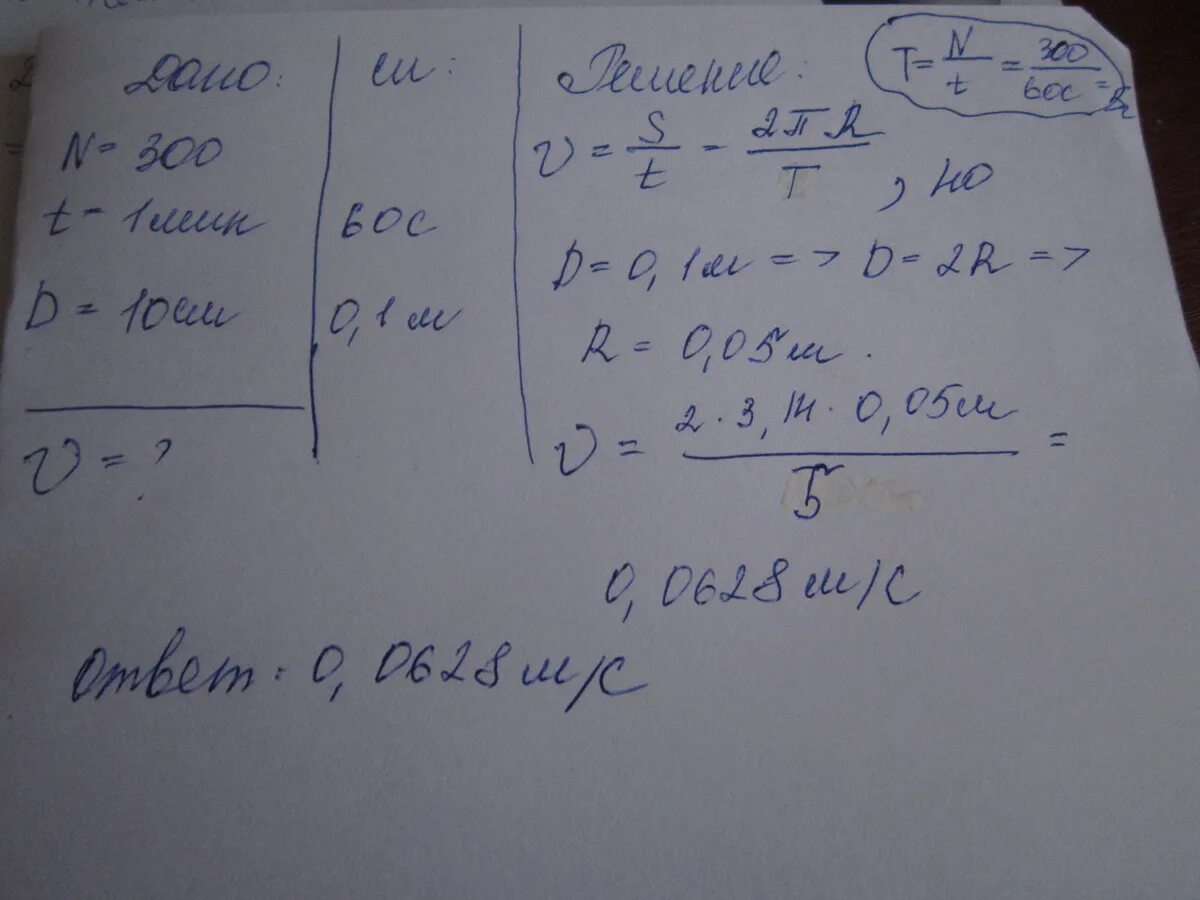 Дано:
N = 300
t = 1 мин
D = 10 см
v = ?
си:
60 с
0,1 м
Решение:
T = N/t = 300/60с = 5
v = S/t = 2πR/T , но
D = 0,1 м => D = 2R =>
R = 0,05 м .
v = 2 · 3,14 · 0,05 м / 5 =
0,0628 м/с
ответ: 0,0628 м/с